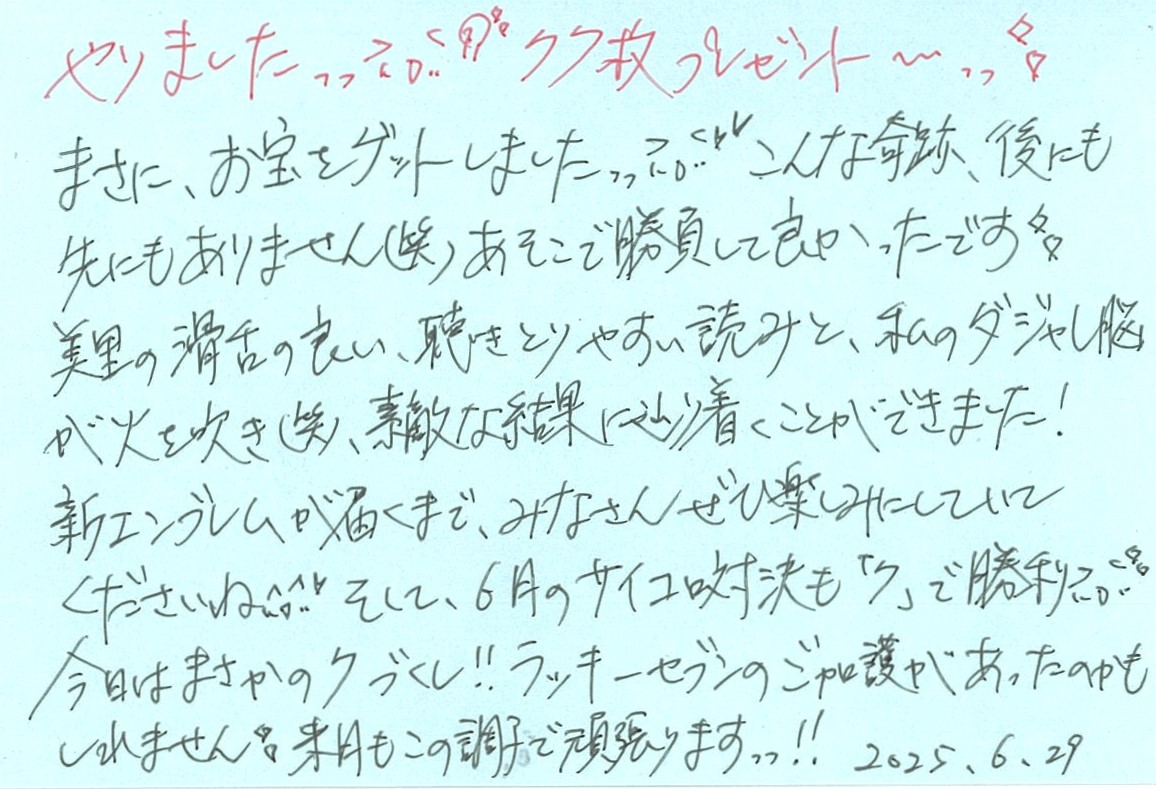 やりましたっっ クク枚プレゼント〜っっ
まさに、お宝をゲットしましたっっ こんな奇跡、後にも
先にもありません(笑)あそこで勝負して良かったです
美里の滑舌の良い、聴きとりやすい読みと、私のダジャレ脳
が火を吹き(笑)、素敵な結果に辿り着くことができました!
新エンブレムが届くまで、みなさんぜひ楽しみにしていて
くださいね そして、6月のサイコロ対決も「ク」で勝利
今日はまさかのクづくし!!ラッキーセブンのご加護があったのかも
しれません 来月もこの調子で頑張りますっっ!! 2025.6.29